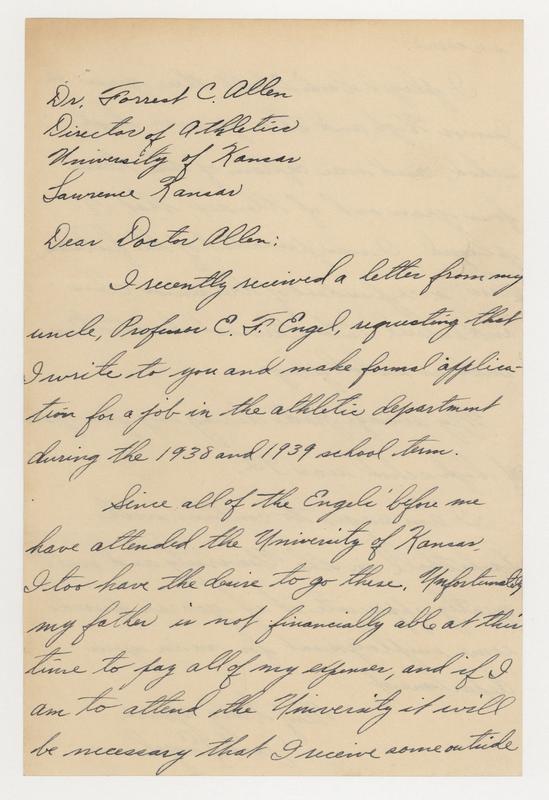 Dr. Forrest C. Allen
Director of Athletics
University of Kansas
Lawrence Kansas
Dear Doctor Allen:
I recently received a letter from my
uncle, Professor E. F. Engel, requesting that
I write to you and make formal applica-
tion for a job in the athletic department
during the 1938 and 1939 school term.
Since all of the Engels' before me
have attended the University of Kansas,
I too have the desire to go there. Unfortunately
my father is not financially able at this
time to pay all of my expenses, and if I
am to attend the University it will
be necessary that I receive some outside